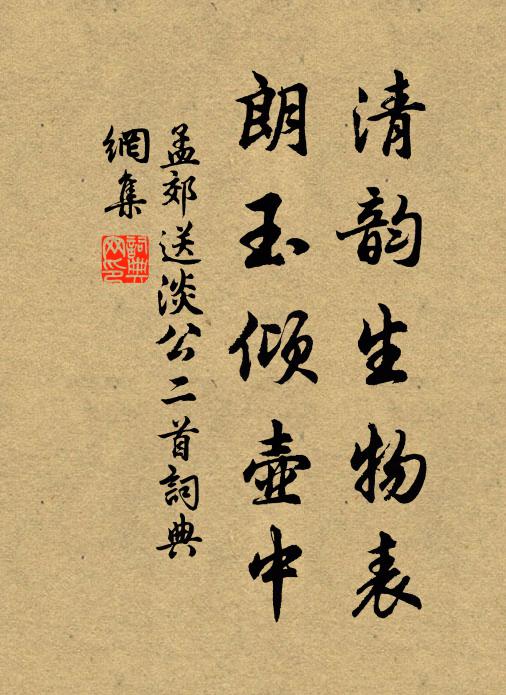 清韵生物表
朗玉倾壶中
孟郊送淡公二首詞典
網集
詞典网印